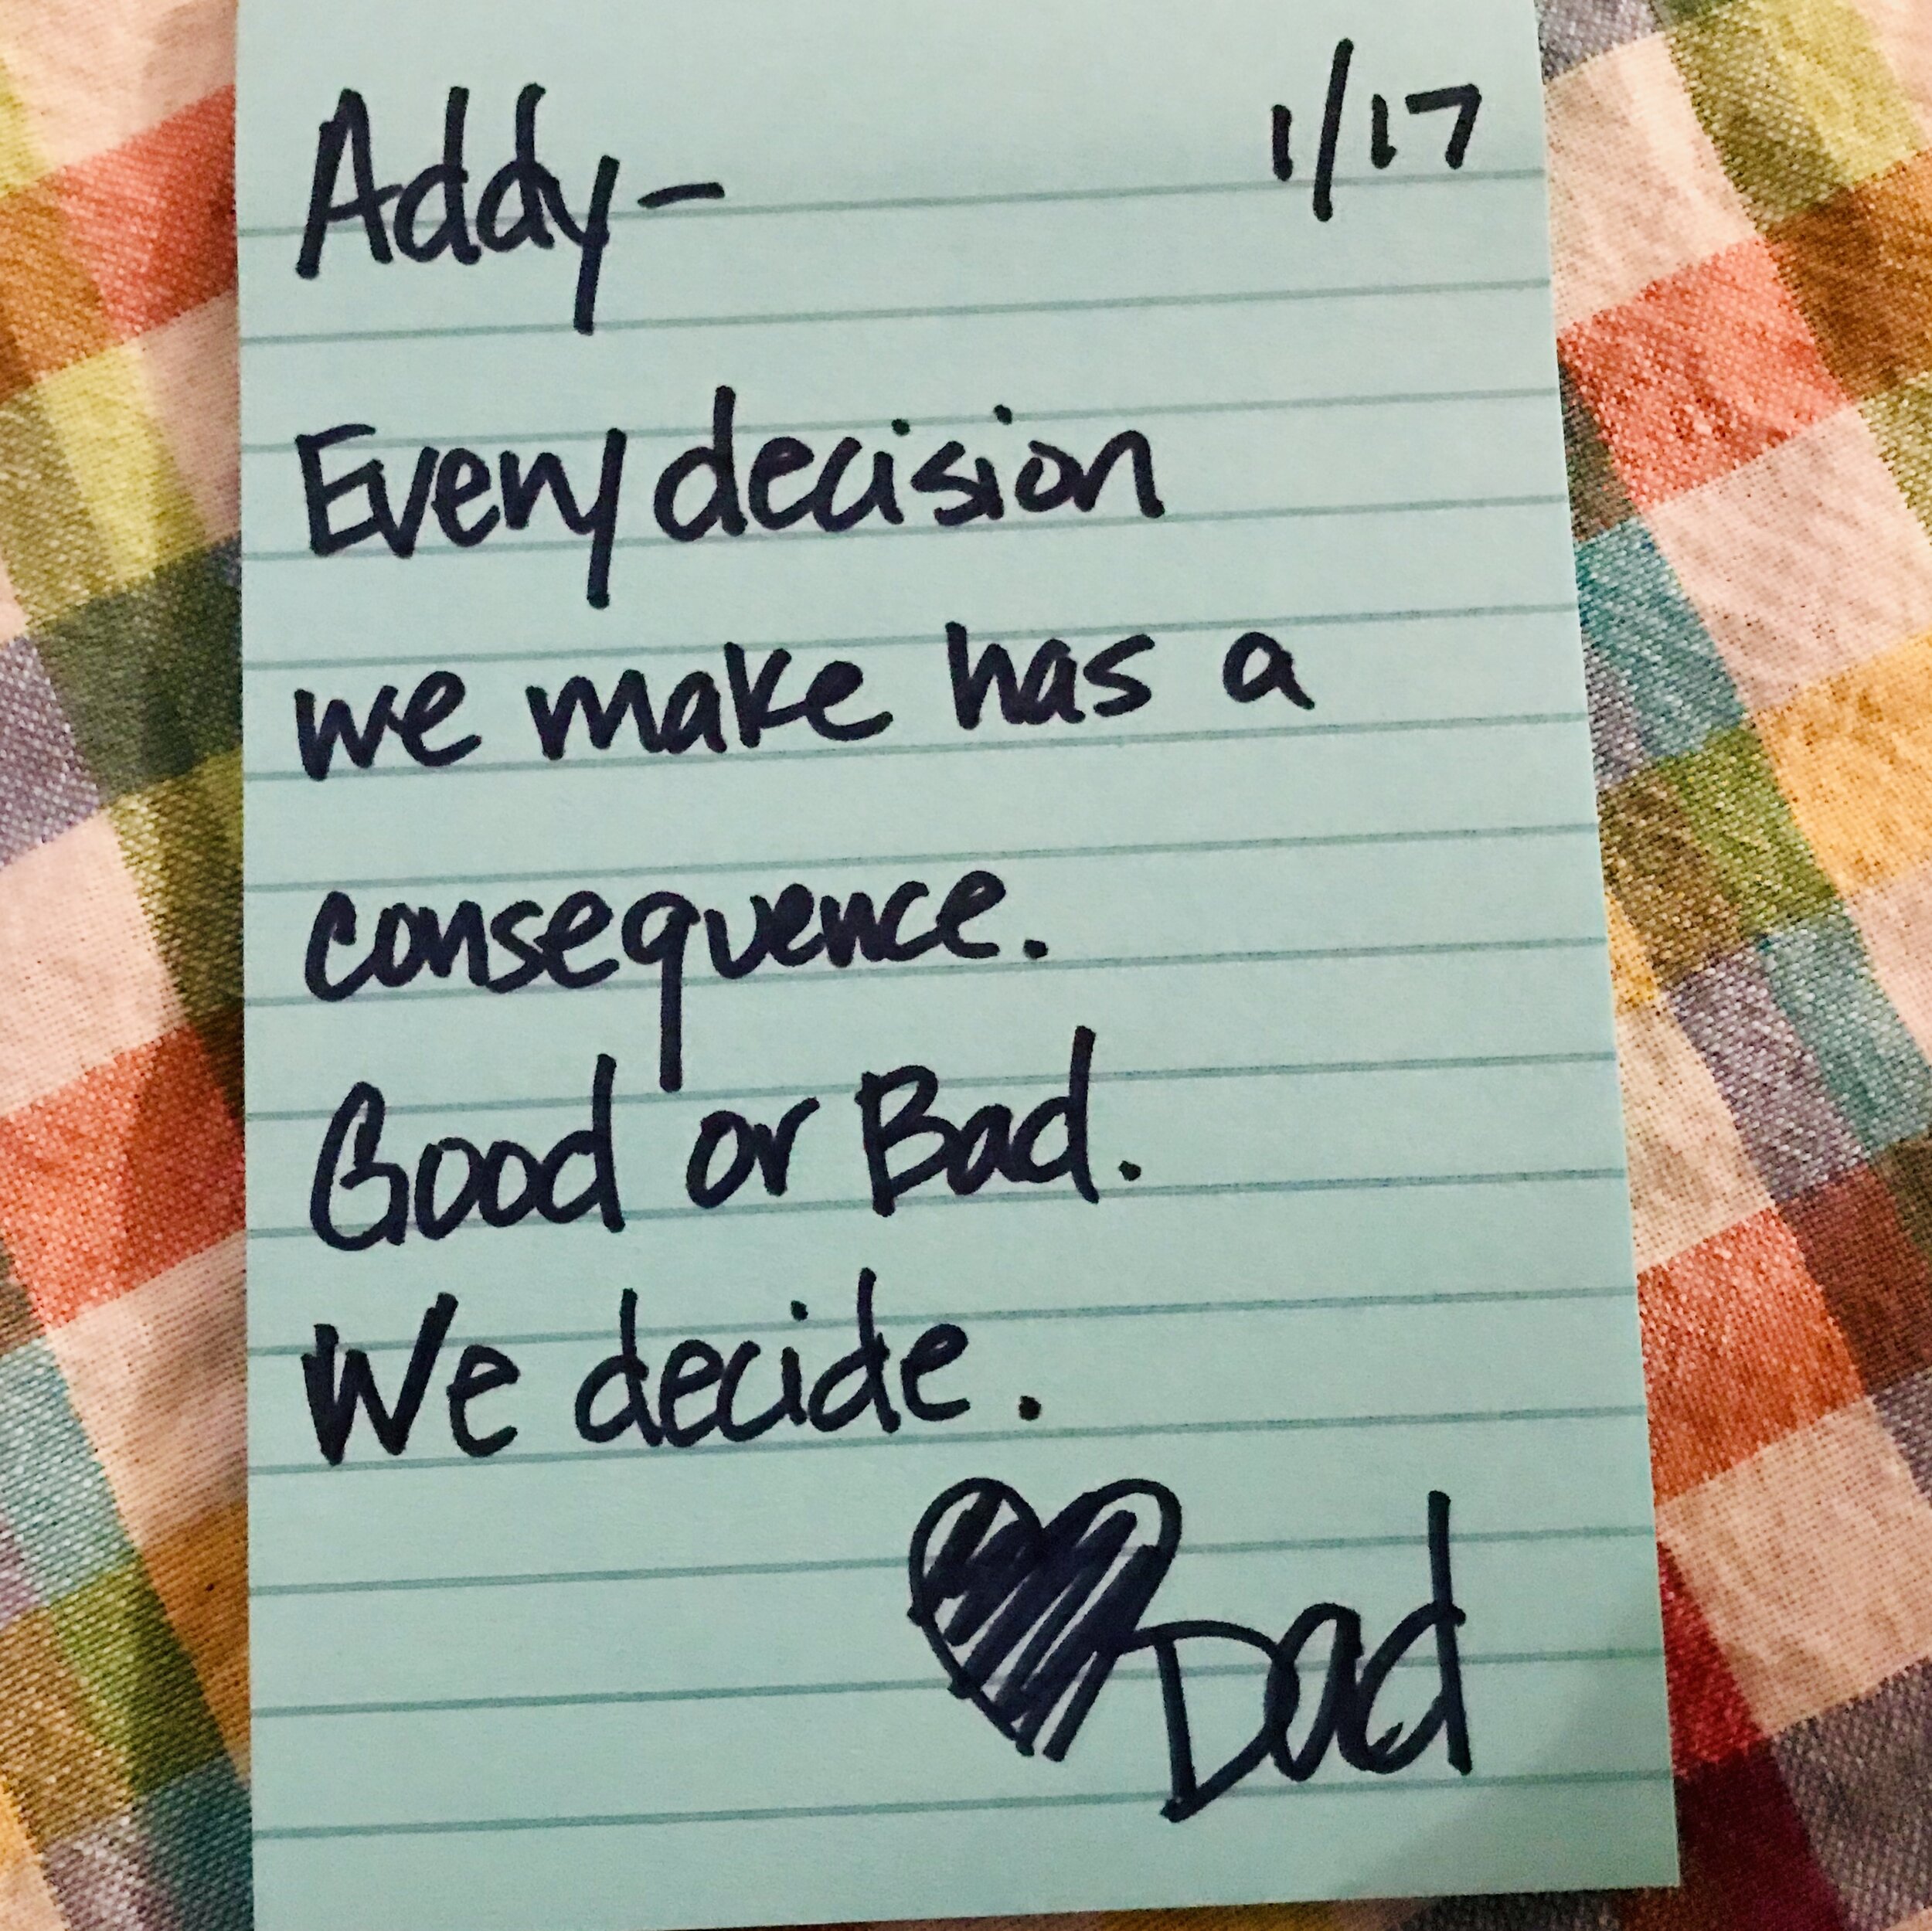 Addy- 1/17
Every decision
we make has a
consequence.
Good or Bad.
We decide.
Dad